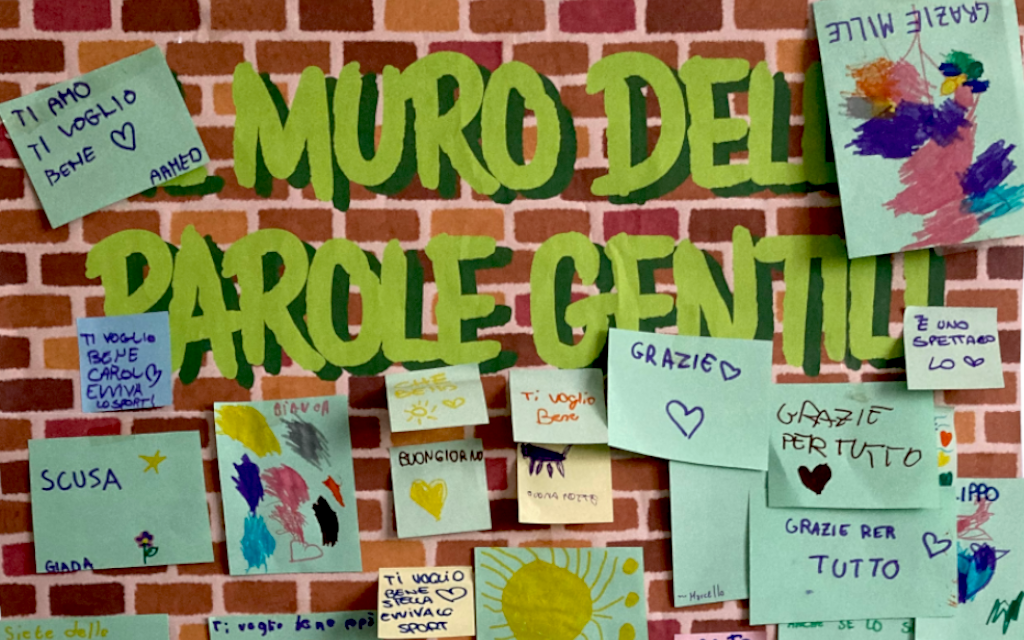 GRAZIE MILLE
TI AMO
TI VOGLIO
BENE
AAMED
MURO DELL
PAROLE GENTILI
TI VOGLIO
BENE
CAROL
EVVIVA
LO SPORT!
È UNO
SPETTACO
LO
GRAZIE
Ti voglio
Bene
BUONGIORNO
GRAZIE
PER TUTTO
SCUSA
GIADA
BUONA NOTTE
GRAZIE PER
TUTTO
LIPPO
TI VOGLIO
BENE
STELLA
EVVIVA LO
SPORT
Marcello
Siete delle
Ti voglio bene papà